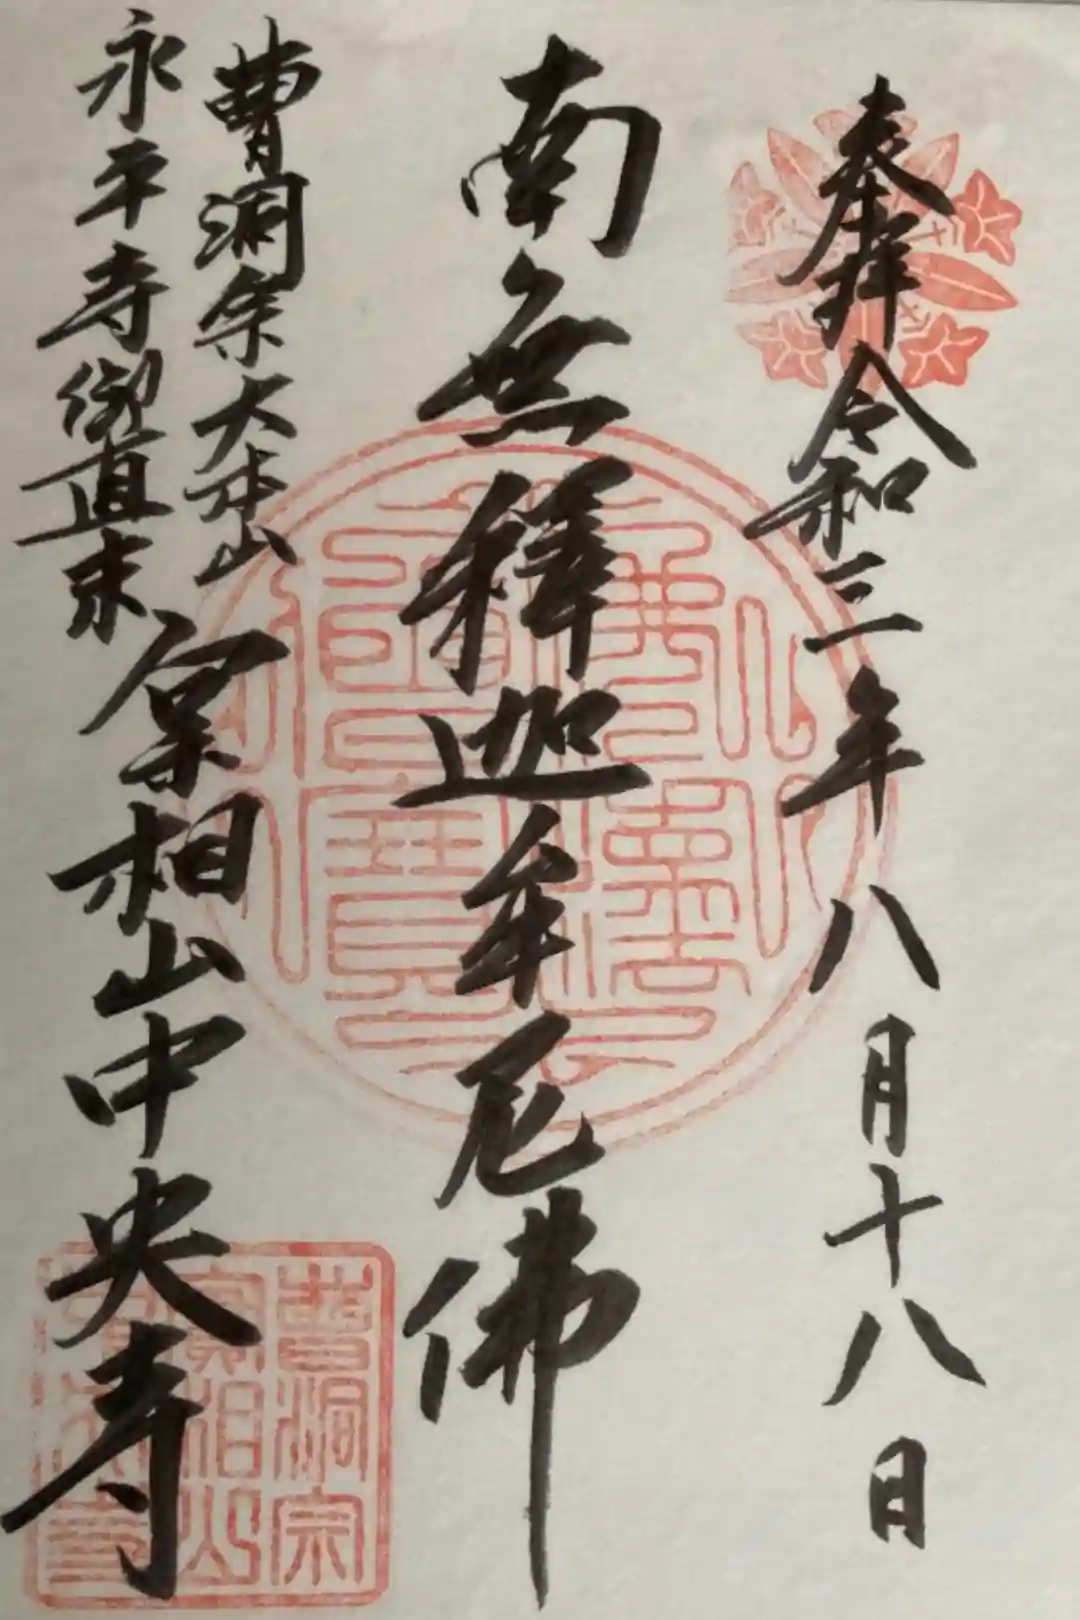 奉拝 令和三年八月十八日
南無釋迦牟尼佛
曹洞宗大本山
永平寺御直末
實相山中央寺
佛法
僧寶
曹洞宗
實相山
中央寺